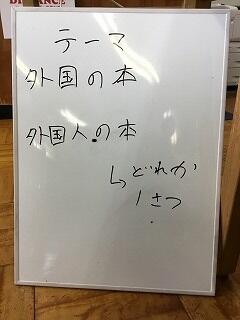 テーマ
外国の本
外国人の本
↳どれか
1さつ